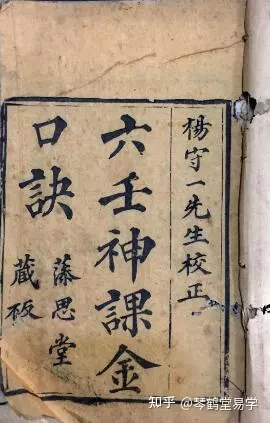 楊守一先生校正
六壬神課金
口訣
藻思堂
藏板
知乎 @琴鹤堂易学